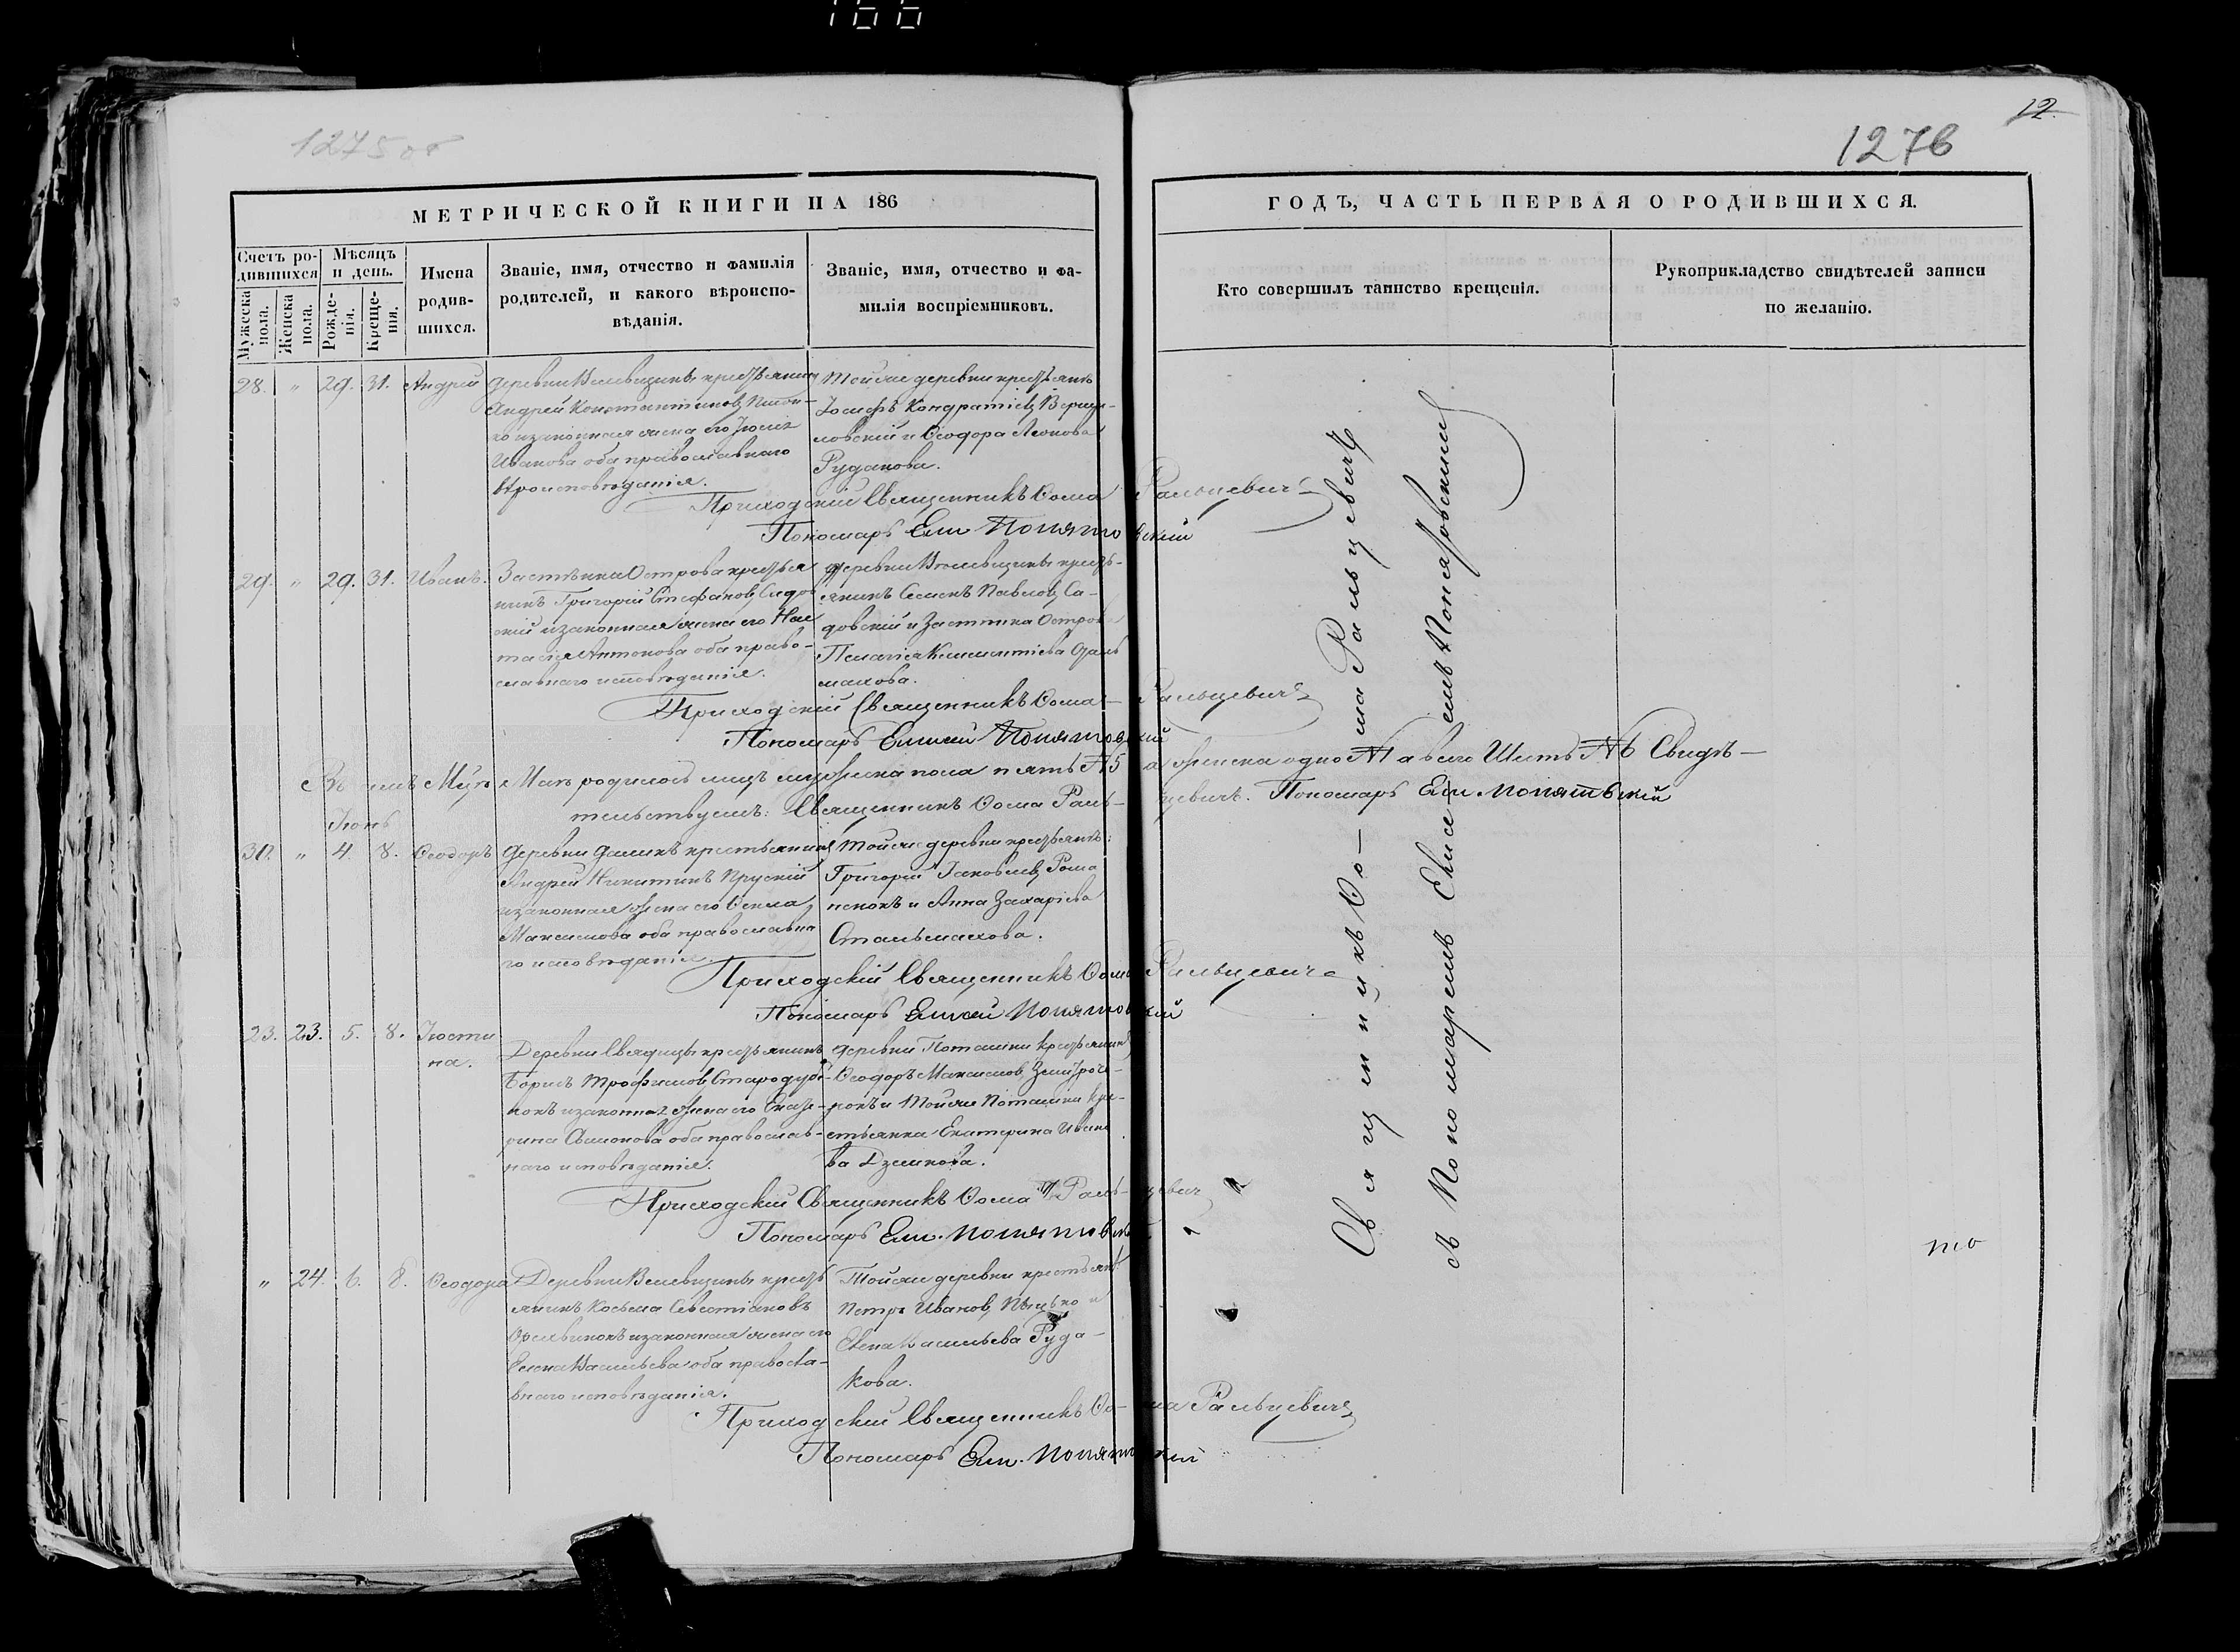 166
1275 об
12.
1276
МЕТРИЧЕСКОЙ КНИГИ НА 186
ГОДЪ, ЧАСТЬ ПЕРВАЯ О РОДИВШИХСЯ.
Счетъ ро-
дившихся
Мужеска
пола.
Женска
пола.
Мѣсяцъ
и день.
Рожде-
нія.
Креще-
нія.
Имена
родив-
шихся.
Званіе, имя, отчество и фамилія
родителей, и какого вѣроиспо-
вѣданія.
Званіе, имя, отчество и фа-
милія воспріемниковъ.
Кто совершилъ таинство крещенія.
Рукоприкладство свидѣтелей записи
по желанію.
28. " 29. 31. Андрей
крестьянинъ
Андрей Константиновъ
и законная жена его
Иванова оба православнаго
вѣроисповѣданія.
Той же деревни крестьянинъ
Іосифъ Кондратіевъ
и Ѳеодора Леонова
Рудакова.
Приходскій Священникъ Ѳома Ральцевичъ
Пономарь Ели Понятовскій
29. " 29. 31. Иванъ.
Застѣнка Острова крестья
нинъ Григорій Стефановъ Садов
скій и законная жена его Нас
тасія Антонова оба право-
славнаго исповѣданія.
крестъ-
янинъ Семенъ Павловъ Са-
довскій и Застѣнка Остров
Пелагія Климентіева
махова.
Приходскій Священникъ Ѳома Ральцевичъ
Пономарь Елисей Понятовскій
Въ семъ Мцѣ Маѣ родилось лицъ мужеска пола пять №5 а женска одно №1 а всего Шесть №6 Свидѣ-
тельствуемъ: Священникъ Ѳома Раль-цевичъ. Пономарь Ели Понятовскій
Іюнь
30. " 4. 8. Ѳеодоръ
Деревни крестьянинъ
Андрей Никитинъ Прускій
и законная жена его Ѳекла
Максимова оба православна
го исповѣданія.
Той же деревни крестьянинъ:
Григорій Іаковлевъ Рома
ненокъ и Анна Захаріева
Стальмахова.
Приходскій Священникъ Ѳома Ральцевичъ
Пономарь Елисей Понятовскій
23. 23. 5. 8. Іусти
на.
Деревни Свядицы крестьянинъ
Борисъ Трофимовъ Стародуб-
нокъ и законная жена его Екате-
рина Симонова оба православ-
наго исповѣданія.
Деревни Поташни крестьянинъ
Ѳеодоръ Максимовъ
нокъ и Той же Поташни кре-
стьянка Екатерина Ивано
ва Дземкова.
Приходскій Священникъ Ѳома Раль-цевичъ
Пономарь Ели. Понятовскій
" 24. 6. 8. Ѳеодора
Деревни крестъ
янинъ Косьма Севастіановъ
и законная жена его
Елена Васильева оба правосла-
внаго исповѣданія.
Той же деревни крестьян:
Петръ Ивановъ и
Елена Васильева Руда-
кова.
Приходскій Священникъ Ѳо-ма Ральцевичъ
Пономарь Ели. Понятовскій
Священникъ Ѳо-ма Ральцевичъ
съ Пономаремъ Елисе-емъ Понятовскимъ
то